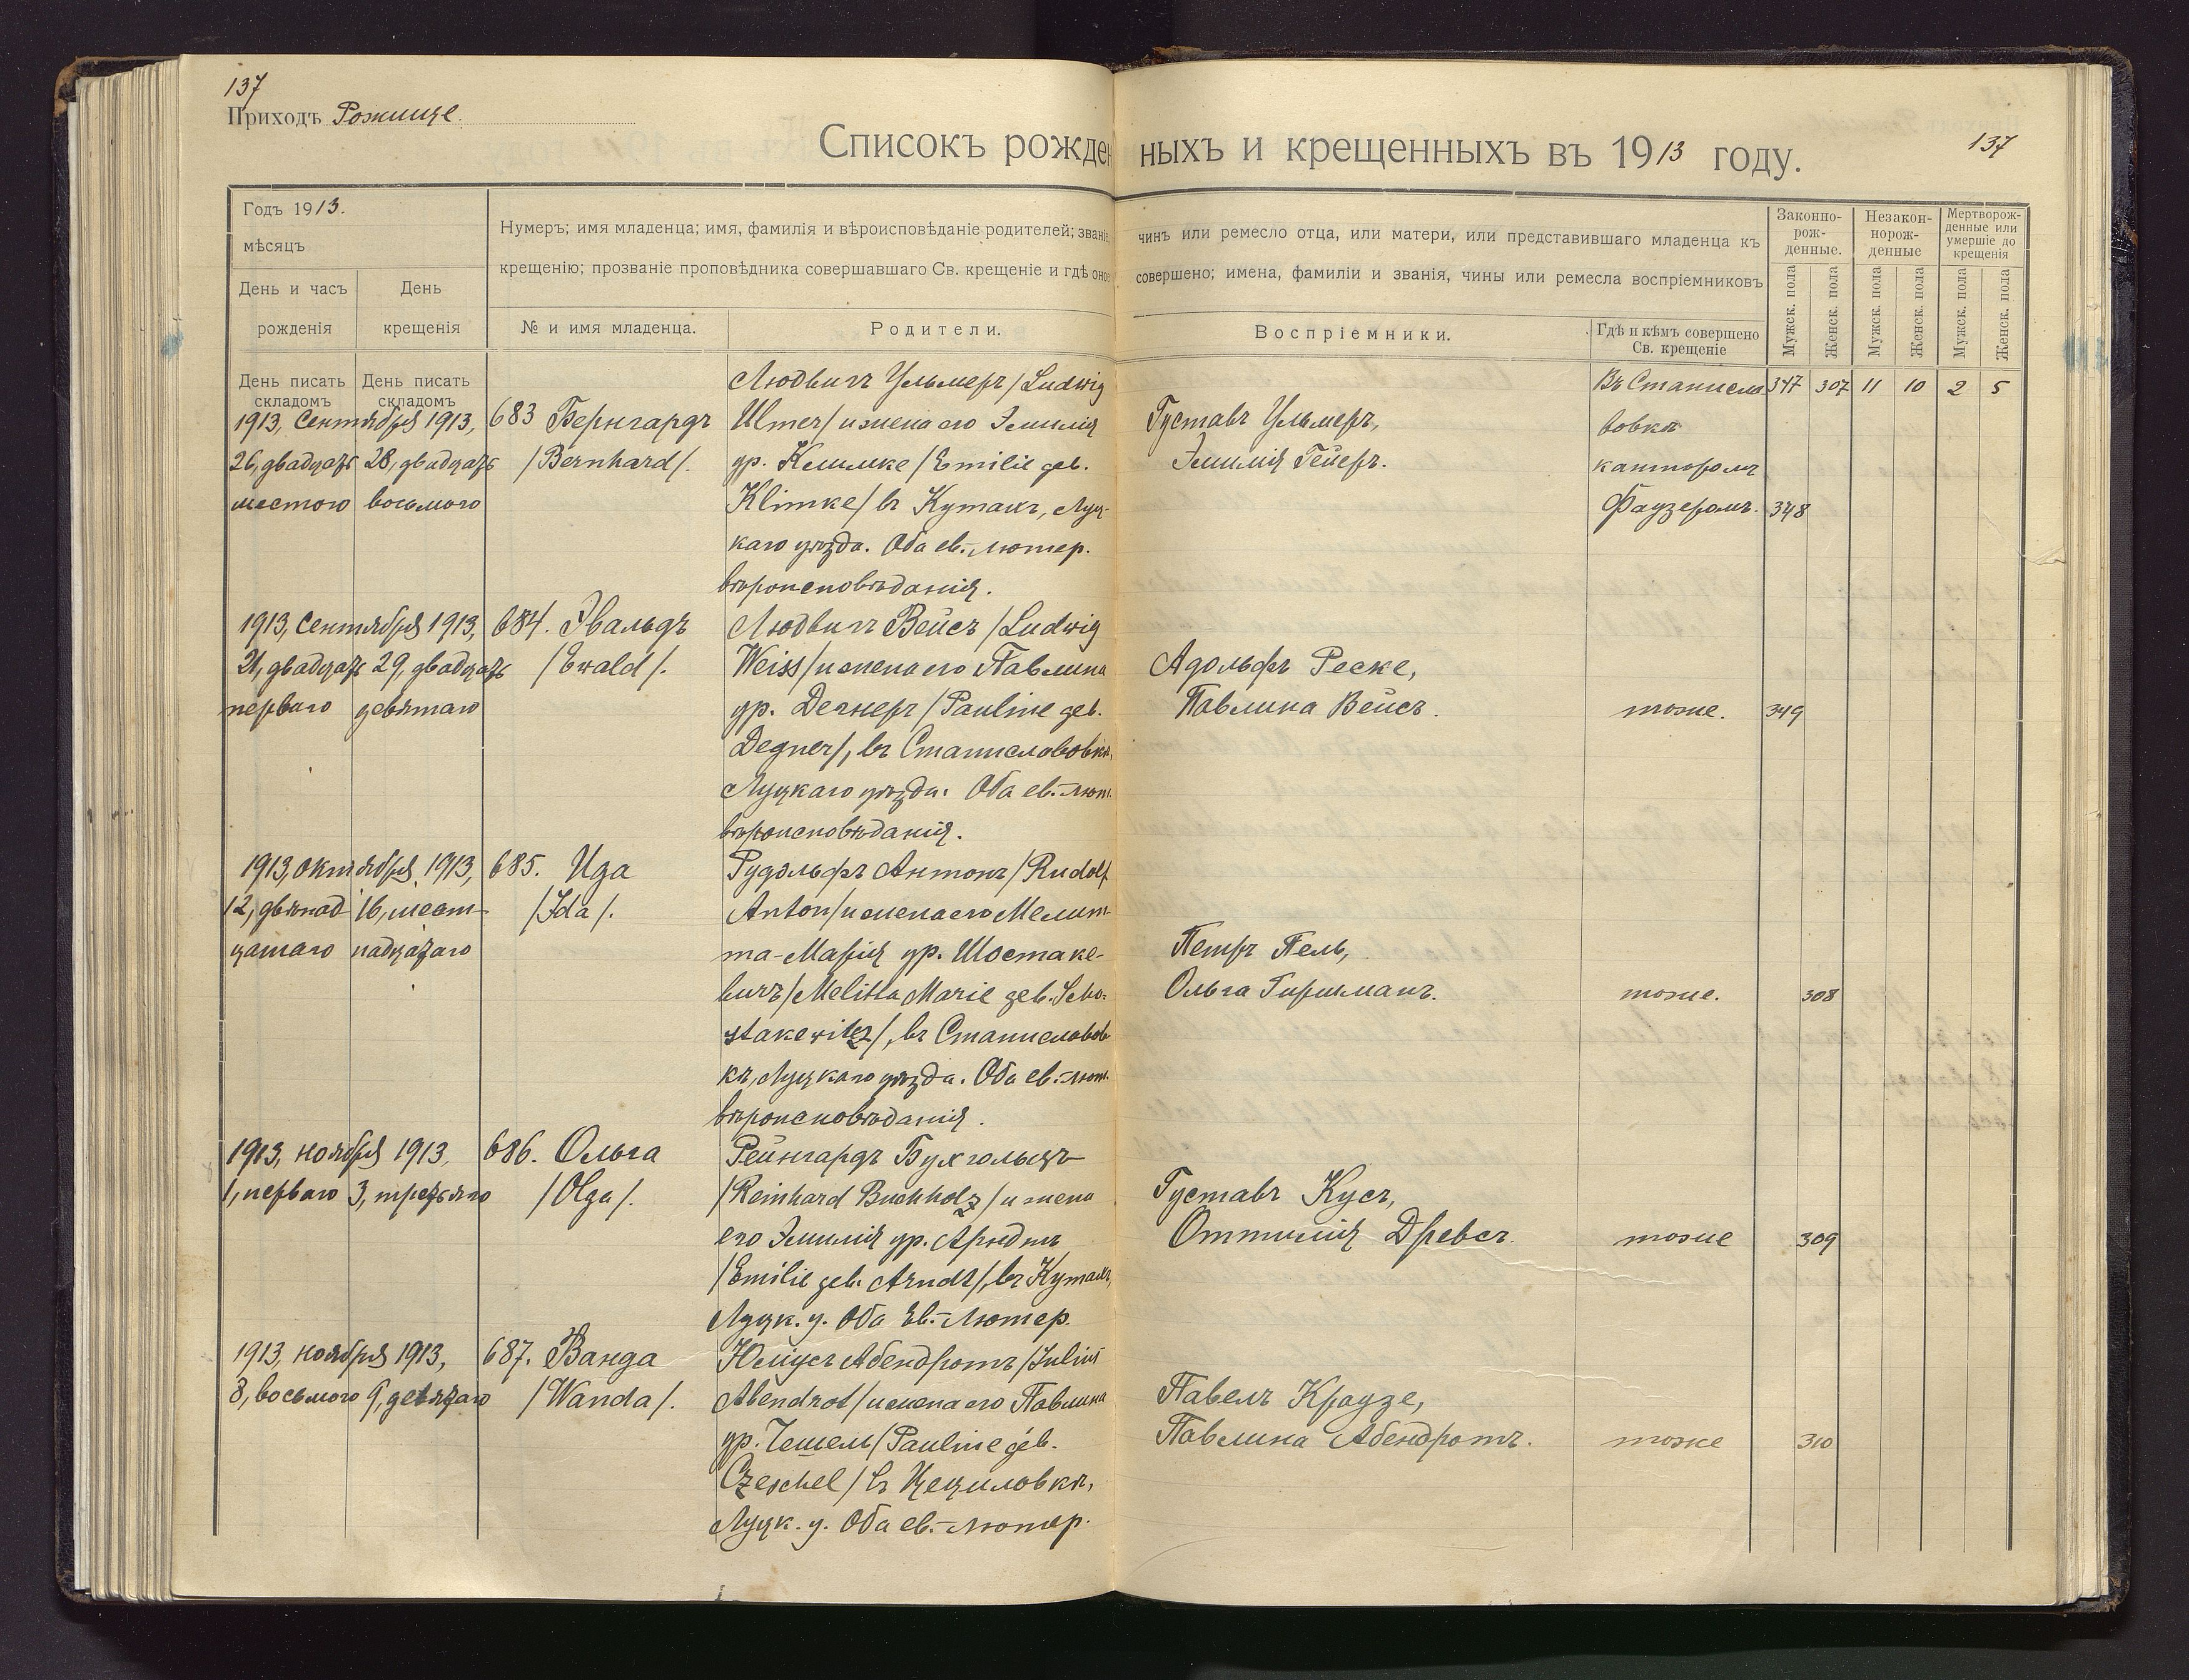 137
Приходъ Рожище
Списокъ рожденныхъ и крещенныхъ въ 1913 году.
137
Годъ 1913.
мѣсяцъ
День и часъ рожденія
День крещенія
Нумеръ; имя младенца; имя, фамилія и вѣроисповѣданіе родителей; званіе, чинъ или ремесло отца, или матери, или представившаго младенца къ
крещенію; прозваніе проповѣдника совершавшаго Св. крещеніе и гдѣ оное совершено; имена, фамиліи и званія, чины или ремесла воспріемниковъ
№ и имя младенца.
Родители.
Воспріемники.
Гдѣ и кѣмъ совершено
Св. крещеніе
Законно-
рож-
денные.
Незакон-
норож-
денные
Мертворож-
денные или
умершіе до
крещенія
Мужск. пола
Женск. пола
Мужск. пола
Женск. пола
Мужск. пола
Женск. пола
День писать складомъ
День писать складомъ
347 307 11 10 2 5
1913, Сентября 1913,
26, двадцать 28, двадцать
шестого восьмого
683 Бернгардъ
/Bernhard/.
Людвигъ Ульмеръ /Ludwig
Ulmer/ и жена его Эмилія
ур. Климке /Emilie geb.
Klimke/ въ Кутахъ, Луц-
каго уѣзда. Оба ев.-лютер.
вѣроисповѣданія.
Густавъ Ульмеръ,
Эмилія Гейеръ.
Въ Станисла
вовкѣ
канторомъ
Фаузеромъ.
348
1913, Сентября 1913,
21, двадцать 29, двадцать
перваго девятаго
684. Эвальдъ
/Ewald/.
Людвигъ Вейсъ /Ludwig
Weiss/ и жена его Павлина
ур. Дегнеръ /Pauline geb.
Degner/, въ Станиславовкѣ,
Луцкаго уѣзда. Оба ев.-лют.
вѣроисповѣданія.
Адольфъ Реске,
Павлина Вейсъ.
тоже.
349
1913, октября 1913,
12, двѣнад 16, шест-
цатаго надцатаго
685. Ида
/Ida/.
Рудольфъ Антонъ /Rudolf
Anton/ и жена его Мелит-
та-Марія ур. Шостаке-
вичъ /Melitta Marie geb. Scho-
stakewitz/, въ Станиславов
кѣ, Луцкаго уѣзда. Оба ев.-лют.
вѣроисповѣданія.
Петръ Пель,
Ольга Гиршманъ.
тоже.
308
1913, ноября 1913,
1, перваго 3, третьяго
686. Ольга
/Olga/.
Рейнгардъ Бухгольцъ
/Reinhard Buchholz/ и жена
его Эмилія ур. Арндтъ
/Emilie geb. Arndt/, въ Кутахъ,
Луцк. у. Оба ев.-лютер.
Густавъ Кусъ,
Оттилія Древсъ.
тоже
309
1913, ноября 1913,
8, восьмого 9, девятаго
687. Ванда
/Wanda/.
Юліусъ Абендротъ /Julius
Abendrot/ и жена его Павлина
ур. Чешель /Pauline geb.
Czeschel/ въ Цециловкѣ,
Луцк. у. Оба ев.-лютер.
Павелъ Краузе,
Павлина Абендротъ.
тоже
310